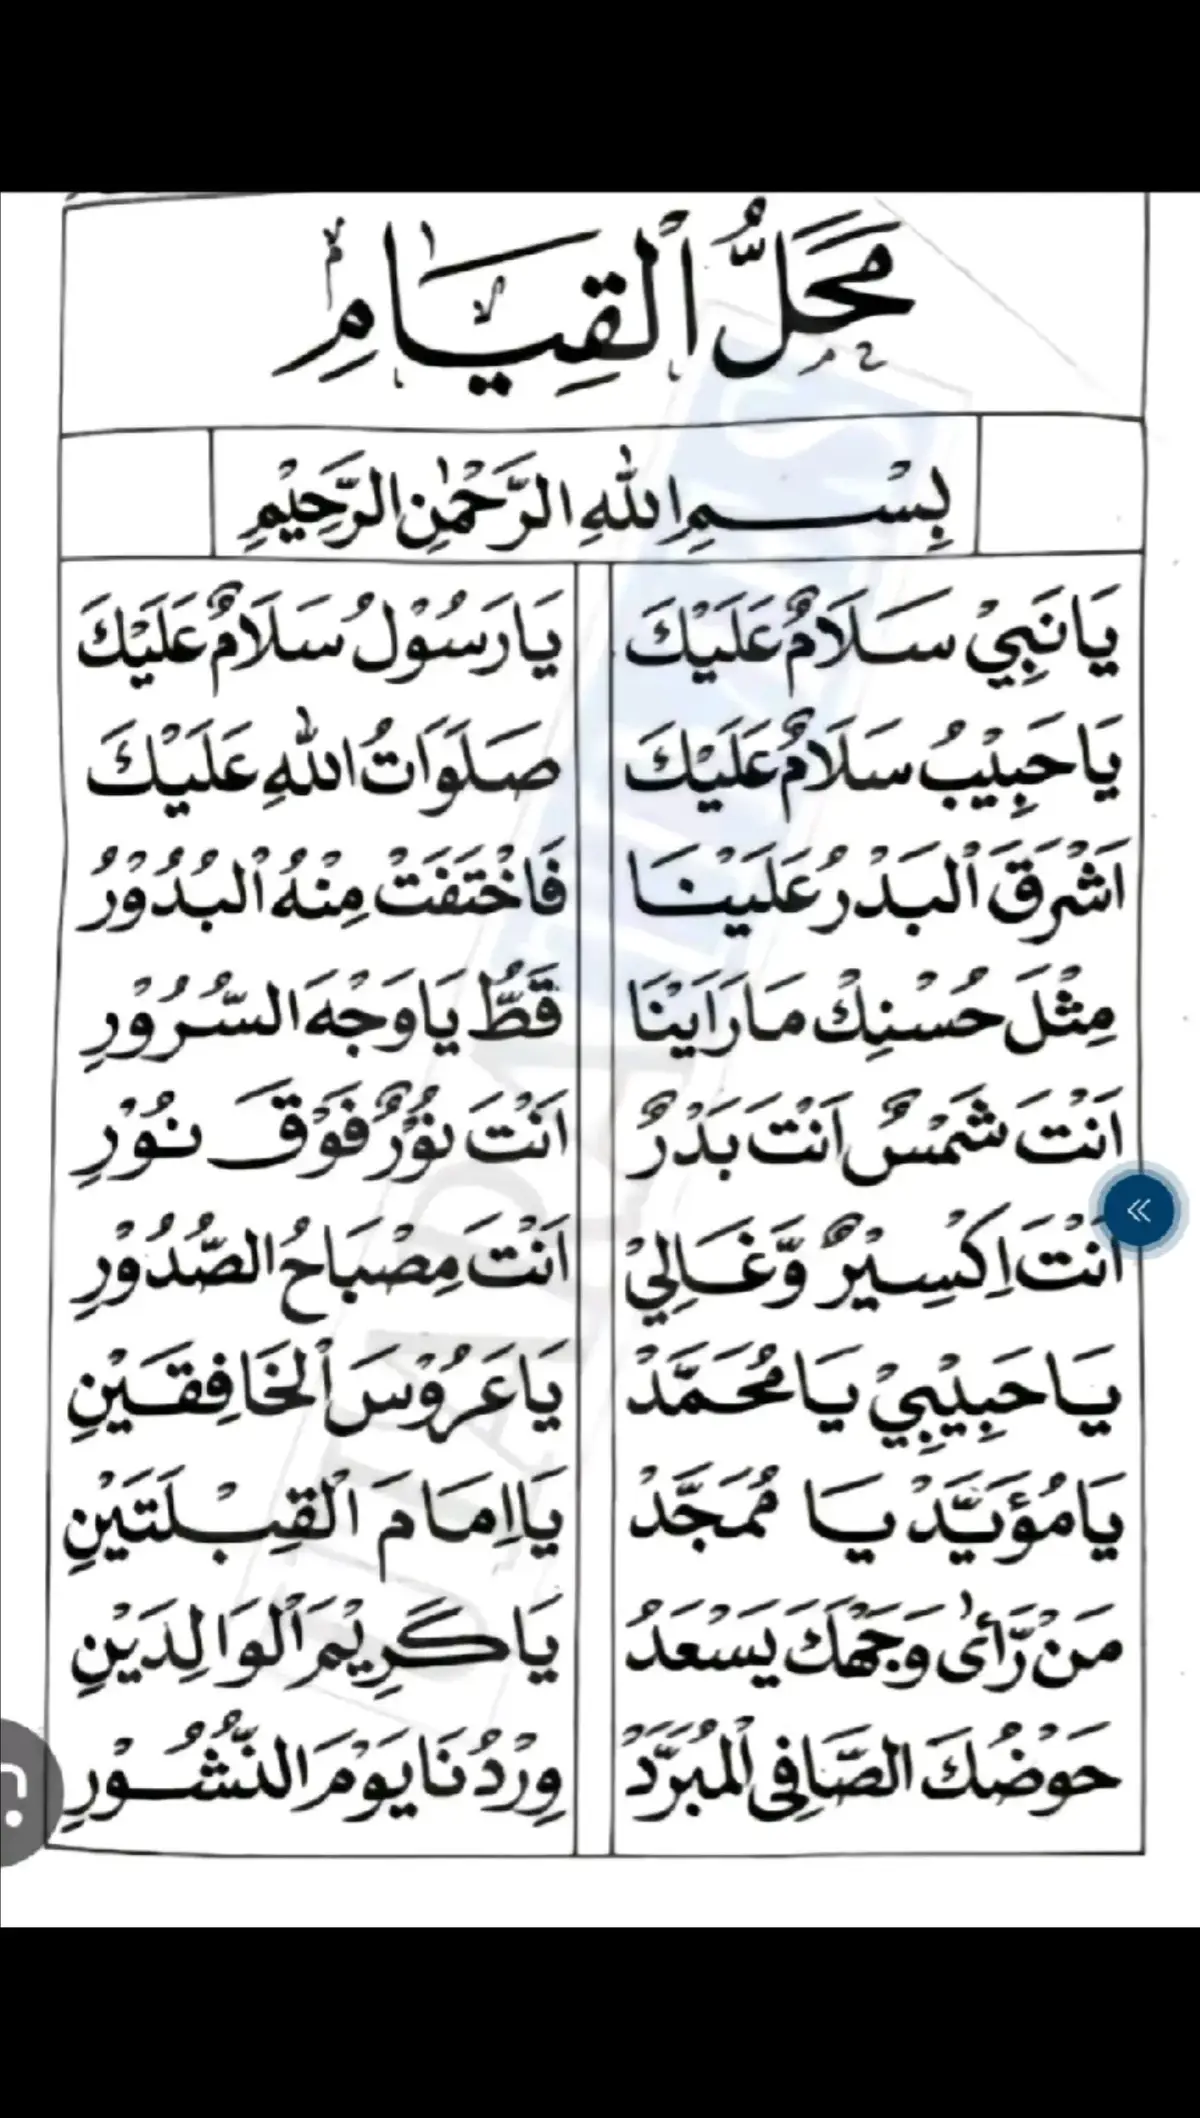 مَحَلُّ الْقِيَامِ
بِسْمِ اللهِ الرَّحْمٰنِ الرَّحِيْمِ
يَا نَبِيْ سَلَامٌ عَلَيْكَ يَا رَسُوْلُ سَلَامٌ عَلَيْكَ
يَا حَبِيْبُ سَلَامٌ عَلَيْكَ صَلَوَاتُ اللهِ عَلَيْكَ
اَشْرَقَ الْبَدْرُ عَلَيْنَا فَاخْتَفَتْ مِنْهُ الْبُدُوْرُ
مِثْلَ حُسْنِكْ مَا رَاَيْنَا قَطُّ يَا وَجْهَ السُّرُوْرِ
اَنْتَ شَمْسٌ اَنْتَ بَدْرٌ اَنْتَ نُوْرٌ فَوْقَ نُوْرِ
اَنْتَ اِكْسِيْرٌ وَّغَالِيْ اَنْتَ مِصْبَاحُ الصُّدُوْرِ
يَا حَبِيْبِيْ يَا مُحَمَّدْ يَا عَرُوْسَ الْخَافِقَيْنِ
يَا مُؤَيَّدْ يَا مُمَجَّدْ يَا اِمَامَ الْقِبْلَتَيْنِ
مَنْ رَّأٰى وَجْهَكَ يَسْعَدُ يَا كَرِيْمَ الْوَالِدَيْنِ
حَوْضُكَ الصَّافِى الْمُبَرَّدْ وِرْدُنَا يَوْمَ النُّشُوْرِ